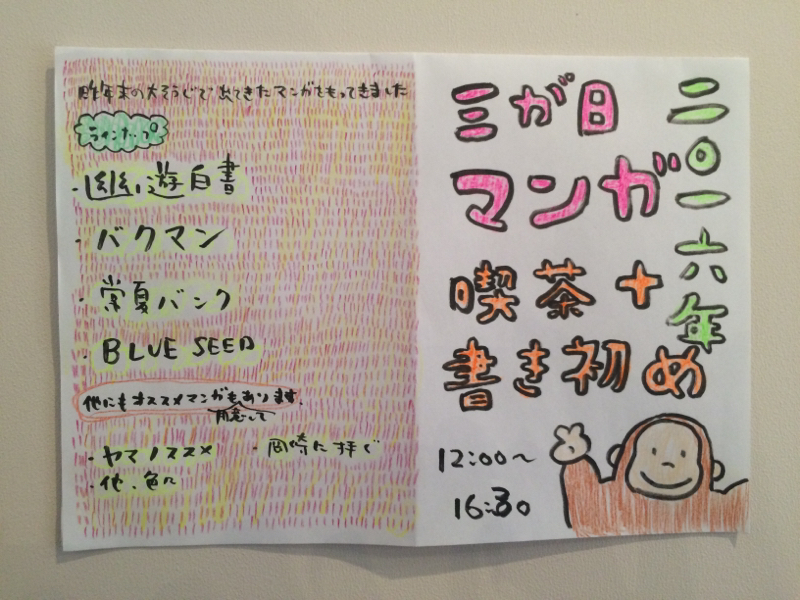 二〇一六年
三が日
マンガ
喫茶+
書き初め
12:00～
16:30
昨年末の大そうじで出てきたマンガをもってきました
ラインナップ
・幽遊白書
・バクマン
・常夏バンク
・BLUE SEED
他にもオススメマンガもあります。
用意して
・ヤマノススメ
・岡崎に捧ぐ
・他、色々